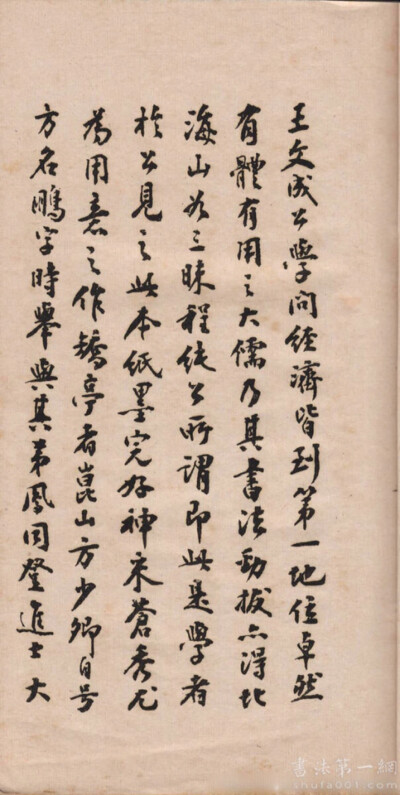 王文成公學問經濟皆到第一地位卓然
有體有用之大儒乃其書法勁拔亦得北
海山谷三昧程純公所謂即此是學者
於公見之此本紙墨完好神采蒼秀尤
為用意之作矯亭者崑山方少卿自号
方名鵬字時舉與其弟鳳同登進士大
書法第一網
shufa001.com